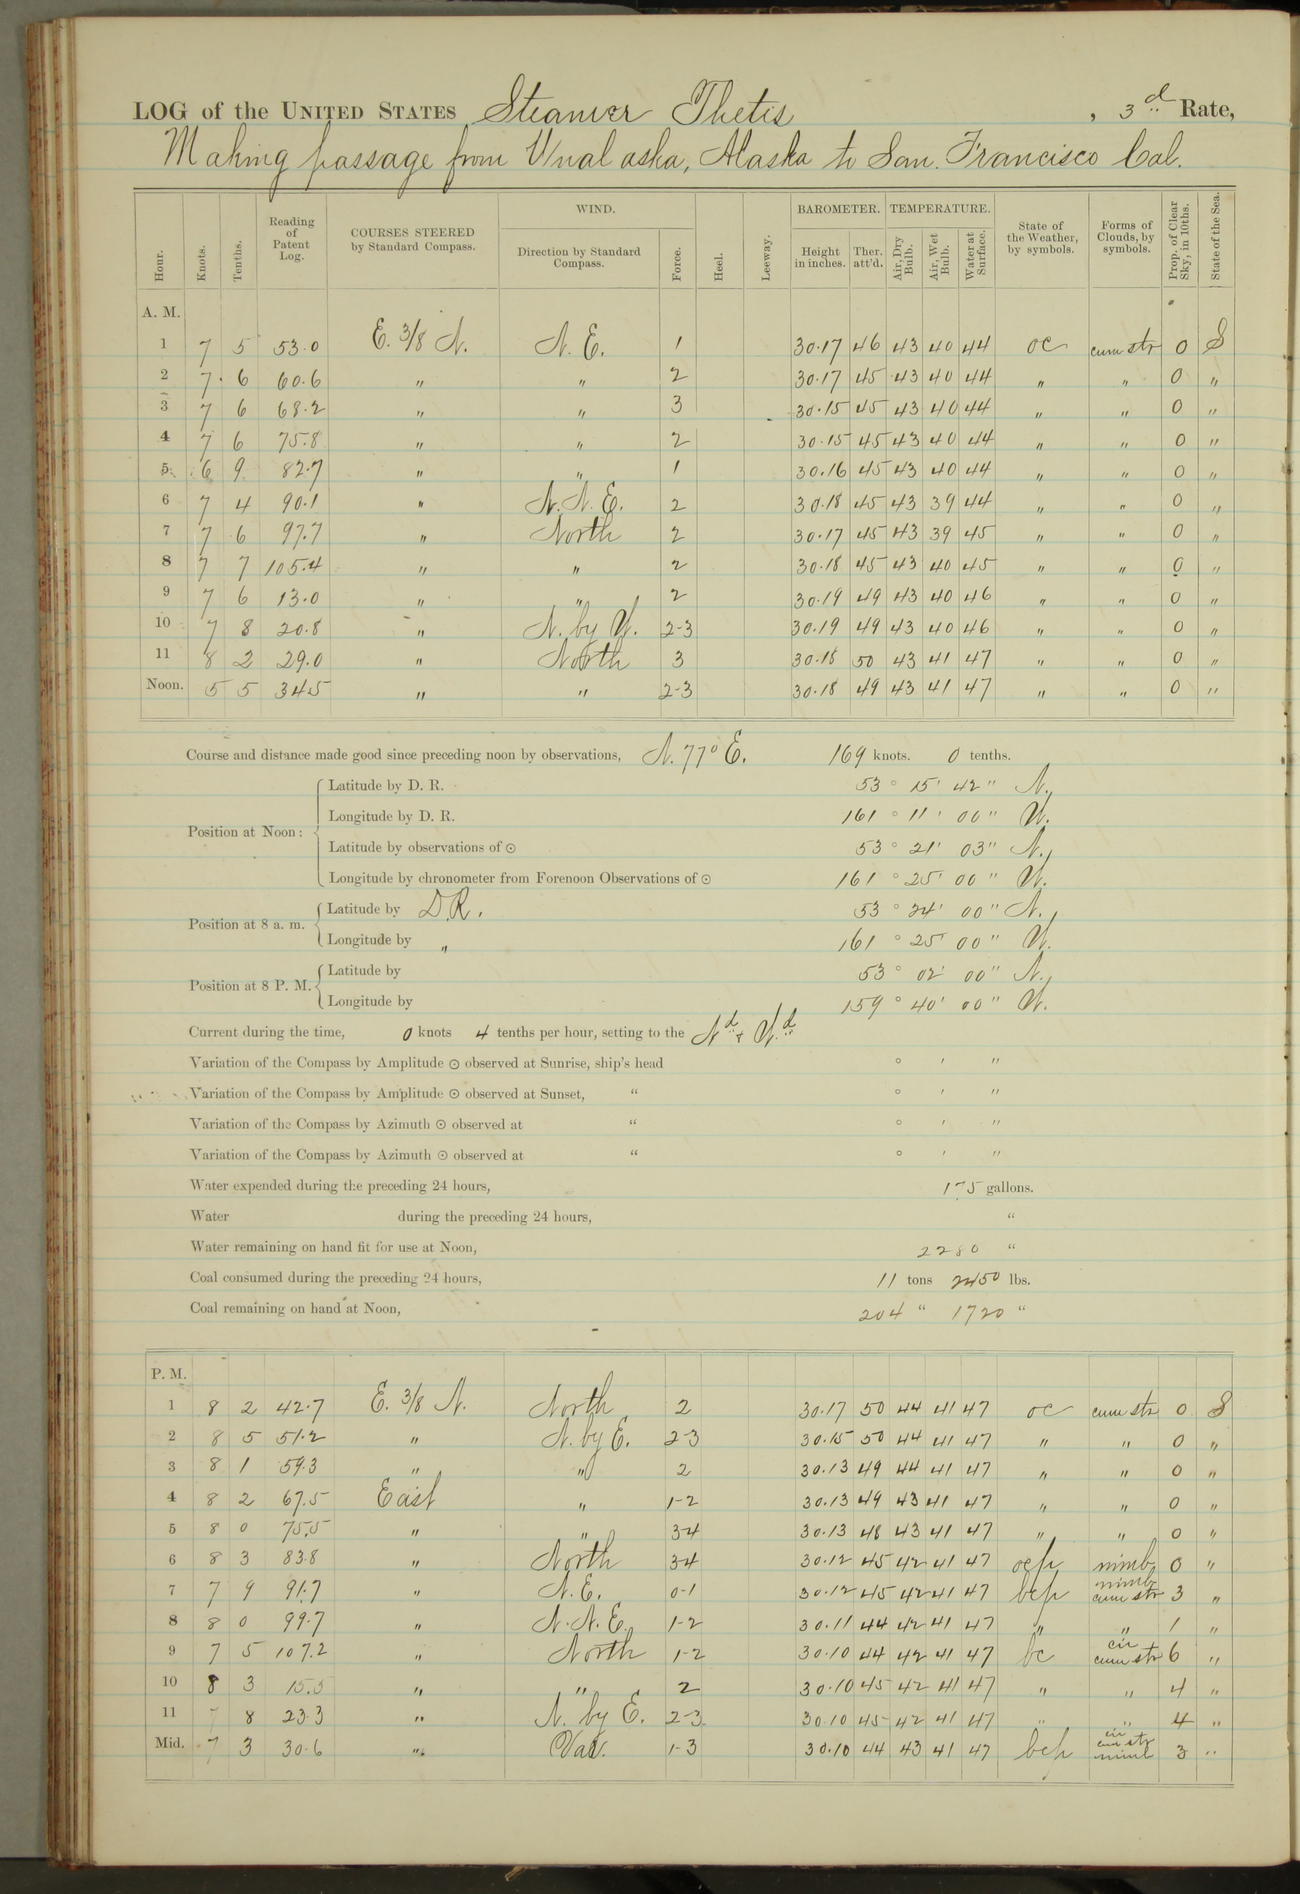 LOG of the UNITED STATES Steamer Thetis, 3d Rate,
Making passage from Unalaska, Alaska to San Francisco Cal.
Hour. Knots. Tenths. Reading of Patent Log. COURSES STEERED by Standard Compass. WIND. Direction by Standard Compass. Force. Heel. Leeway. BAROMETER. Height in inches. Ther. att'd. TEMPERATURE. Air, Dry Bulb. Air, Wet Bulb. Water at Surface. State of the Weather, by symbols. Forms of Clouds, by symbols. Prop. of Clear Sky, in 10ths. State of the Sea.
A. M.
1 7 5 53.0 E. 3/8 N. N. E. 1 30.17 46 43 40 44 oc cum str 0 S
2 7 6 60.6 " " 2 30.17 45 43 40 44 " " 0 "
3 7 6 68.2 " " 3 30.15 45 43 40 44 " " 0 "
4 7 6 75.8 " " 2 30.15 45 43 40 44 " " 0 "
5 6 9 82.7 " " 1 30.16 45 43 40 44 " " 0 "
6 7 4 90.1 " N. N. E. 2 30.18 45 43 39 44 " " 0 "
7 7 6 97.7 " North 2 30.17 45 43 39 45 " " 0 "
8 7 7 105.4 " " 2 30.18 45 43 40 45 " " 0 "
9 7 6 13.0 " " 2 30.19 49 43 40 46 " " 0 "
10 7 8 20.8 " N. by W. 2-3 30.19 49 43 40 46 " " 0 "
11 8 2 29.0 " North 3 30.18 50 43 41 47 " " 0 "
Noon. 5 5 34.5 " " 2-3 30.18 49 43 41 47 " " 0 "
Course and distance made good since preceding noon by observations, N. 77° E. 169 knots. 0 tenths.
Position at Noon:
Latitude by D. R. 53° 15' 42" N.
Longitude by D. R. 161° 11' 00" W.
Latitude by observations of ☉ 53° 21' 03" N.
Longitude by chronometer from Forenoon Observations of ☉ 161° 25' 00" W.
Position at 8 a. m.
Latitude by D.R. 53° 24' 00" N.
Longitude by " 161° 25' 00" W.
Position at 8 P. M.
Latitude by 53° 02' 00" N.
Longitude by 159° 40' 00" W.
Current during the time, 0 knots 4 tenths per hour, setting to the Nd & Wd
Variation of the Compass by Amplitude ☉ observed at Sunrise, ship's head ° ' "
Variation of the Compass by Amplitude ☉ observed at Sunset, " ° ' "
Variation of the Compass by Azimuth ☉ observed at " ° ' "
Variation of the Compass by Azimuth ☉ observed at " ° ' "
Water expended during the preceding 24 hours, gallons.
Water during the preceding 24 hours, "
Water remaining on hand fit for use at Noon, 2280 "
Coal consumed during the preceding 24 hours, 11 tons lbs.
Coal remaining on hand at Noon, 204 " 1720 "
P. M.
1 8 2 42.7 E. 3/8 N. North 2 30.17 50 44 41 47 oc cum str 0 S
2 8 5 51.2 " N. by E. 2-3 30.15 50 44 41 47 " " 0 "
3 8 1 59.3 " " 2 30.13 49 44 41 47 " " 0 "
4 8 2 67.5 East " 1-2 30.13 49 43 41 47 " " 0 "
5 8 0 75.5 " " 3-4 30.13 48 43 41 47 " " 0 "
6 8 3 83.8 " North 3-4 30.12 45 42 41 47 ocp nimb 0 "
7 7 9 91.7 " N. E. 0-1 30.12 45 42 41 47 bcp nimb cum str 3 "
8 8 0 99.7 " N. N. E. 1-2 30.11 44 42 41 47 " " 1 "
9 7 5 107.2 " North 1-2 30.10 44 42 41 47 bc cir cum str 6 "
10 8 3 15.5 " " 2 30.10 45 42 41 47 " " 4 "
11 7 8 23.3 " N. by E. 2-3 30.10 45 42 41 47 " " 4 "
Mid. 7 3 30.6 " Var. 1-3 30.10 44 43 41 47 bcp cir cum str nimb 3 "